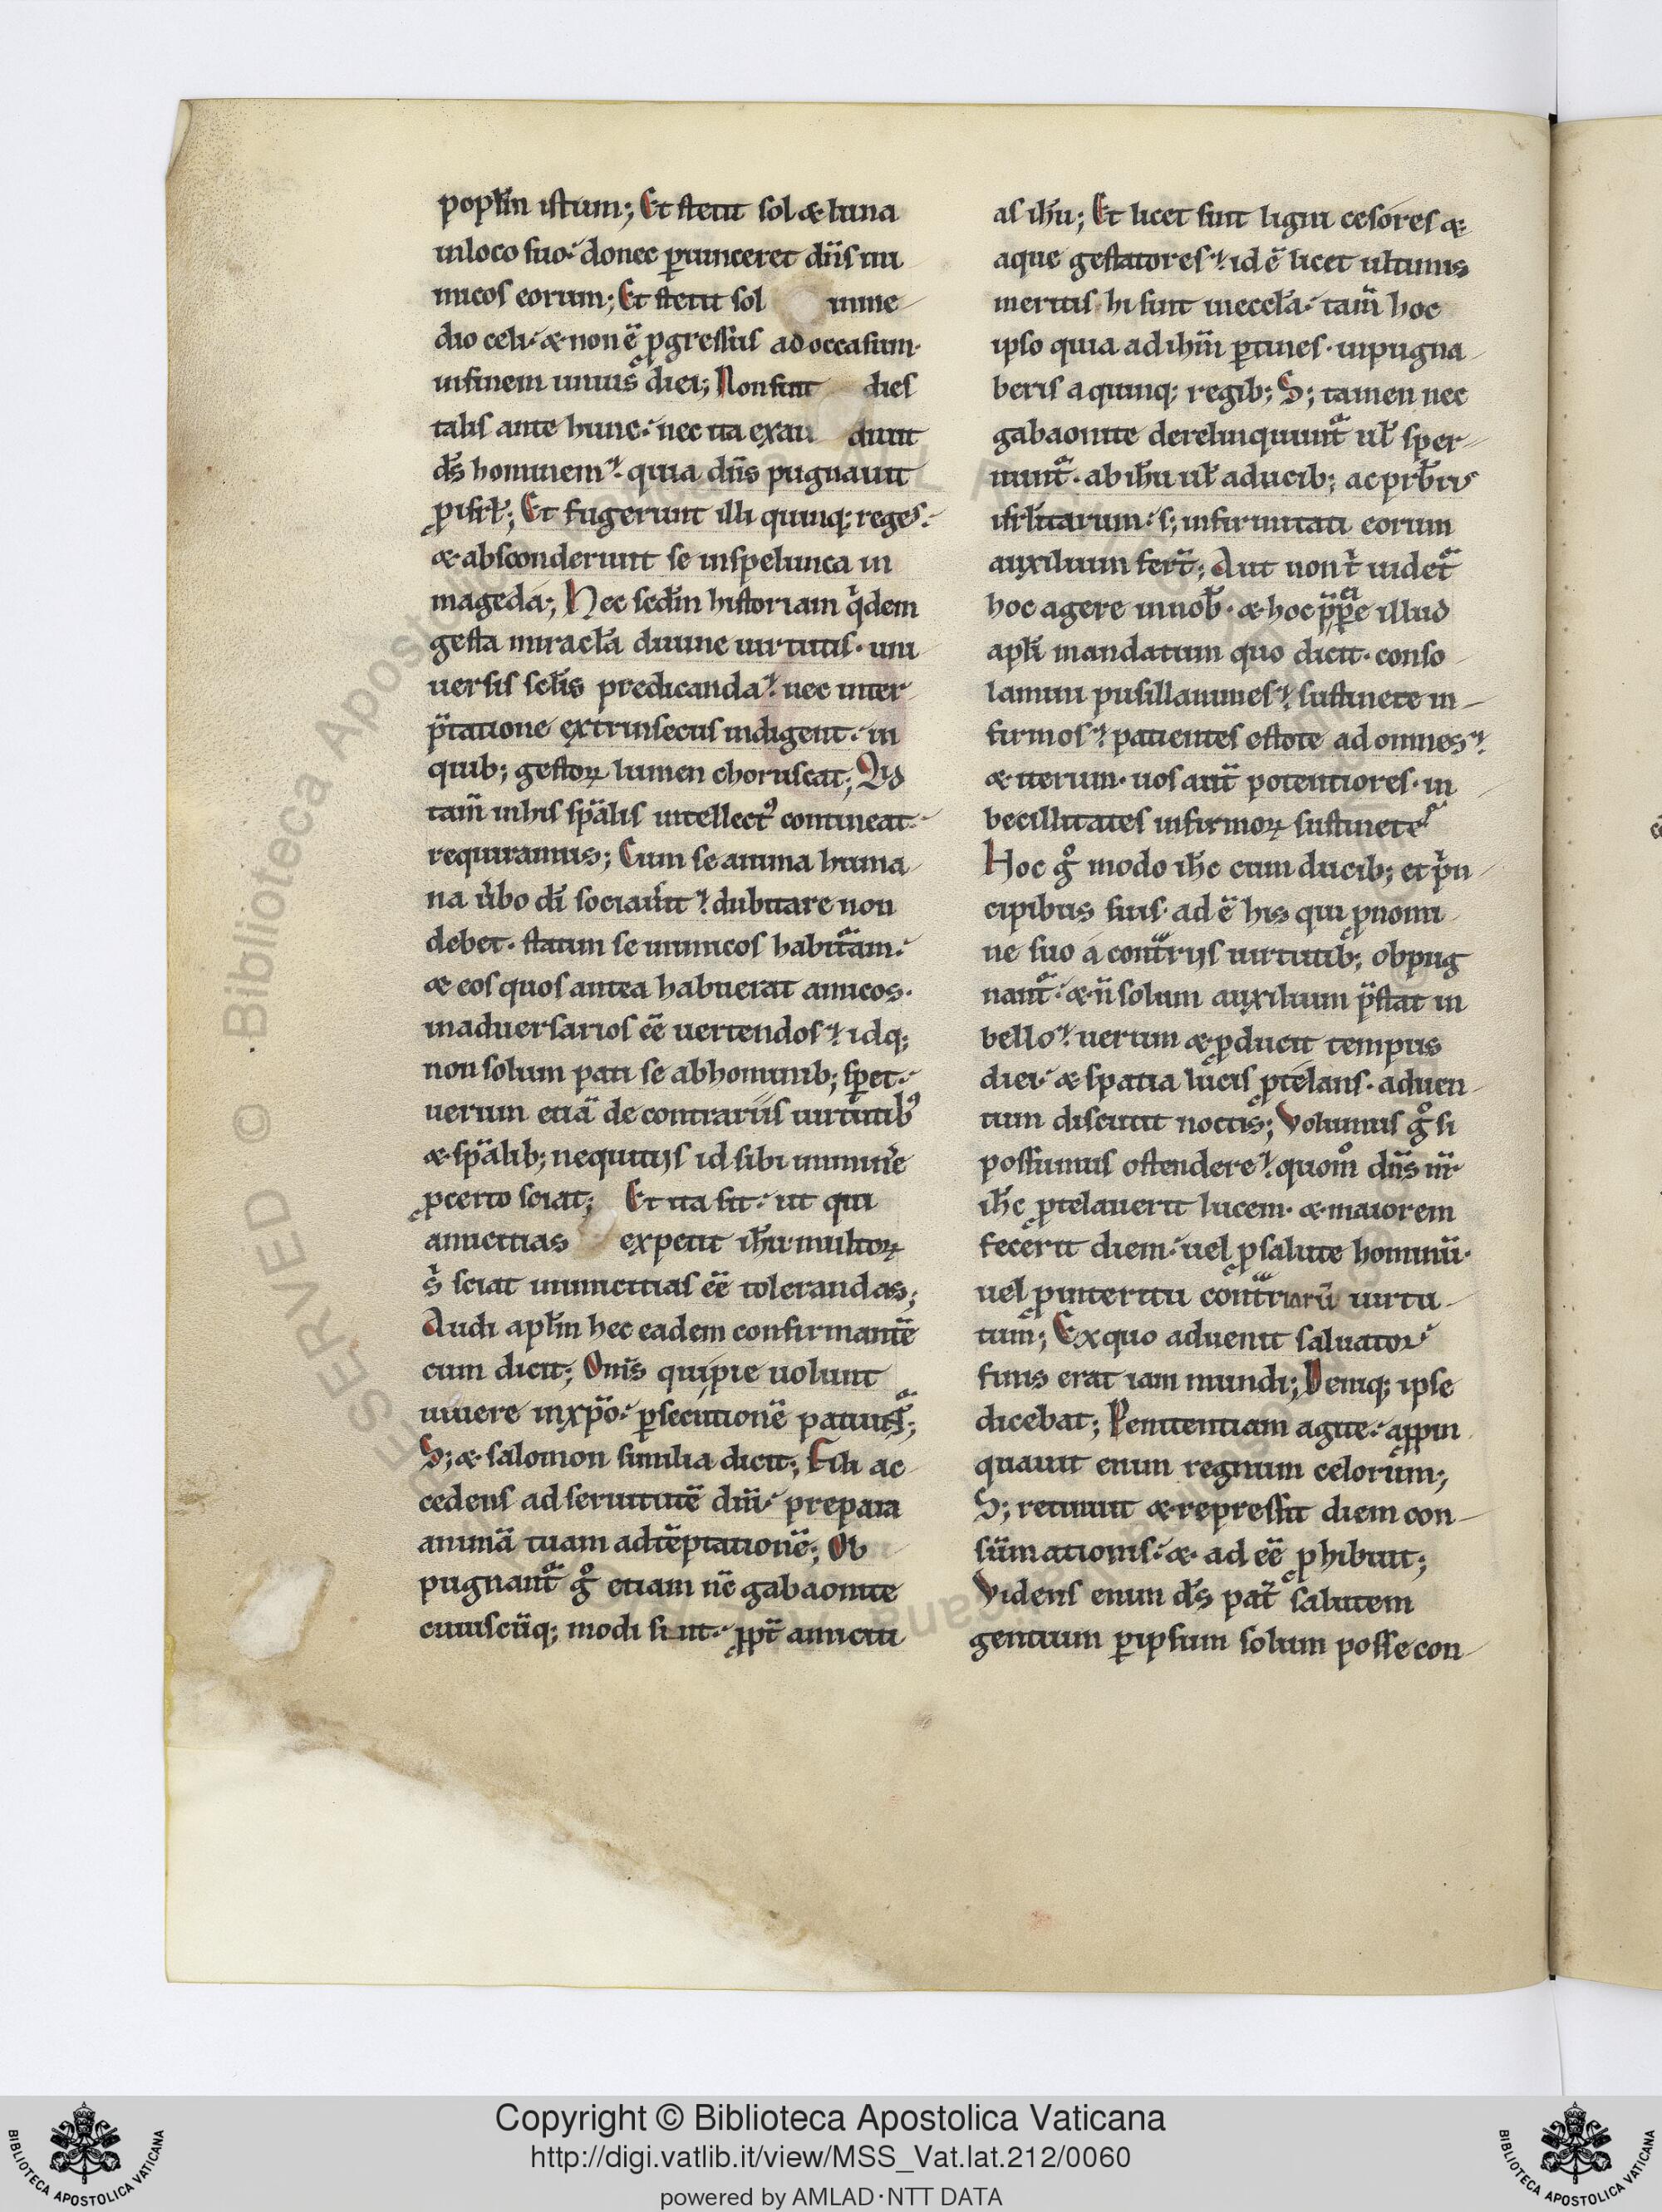 poplm̄ istum; Et stetit sol & luna
inloco suo· donec puinceret dn̄s ini
micos eorum; Et stetit sol inme
dio celi· & non ē pgressus ad occasum·
infinem unius diei; Non fuit dies
talis ante hunc· nec ita exau diuit
ds̄ hominem· quia dn̄s pugnauit
p isrł; Et fugerunt illi quinq; reges·
& absconderunt se inspelunca in
mageda; Hec scdm̄ historiam qͥdem
gesta miracła diuine uirtutis· uni
uersis scłis predicanda· nec inter
p̄tatione extrinsecus indigent· in
quib; gestoꝝ lumen choruscat; Qd
tam̄ inhis sp̄alis intellectꝰ contineat·
requiramus; Cum se anima huma
na ūbo dī sociauit· dubitare non
debet· statim se inimicos habituram·
& eos quos antea habuerat amicos·
inaduersarios eē uertendos· idq;
non solum pati se abhominib; speret·
uerum etiā de contrariis uirtutibꝰ
& sp̄alib; nequitijs id sibi imminere
pcerto sciat; Et ita fit· ut qui
amicitias expetit ihū multoꝝ
s̄ sciat inimicitias eē tolerandas;
Audi aplm̄ hec eadem confirmantē
cum dicit; Om̄s qui pie uolunt
uiuere inxp̄o· psecutionē patiunt̄;
S; & salomon similia dicit; Fili ac
cedens ad seruitutē dn̄i· prepara
animā tuam adtēptationē; Ob
pugnant̄ gͦ etiam nc̄ gabaonite
cuiuscūq; modi sint· ppt̄ amiciti
as ihū; Et licet sint ligni cesores &
aque gestatores· id ē licet ultimis
meritis hi sint ineccła· tam̄ hoc
ipso quia ad ihm̄ ptines· inpugna
beris a quinq; regib; S; tamen nec
gabaonite derelinquunt̄ uł sper
nunt̄· ab ihū uł aducib; ac prb̄ris
isrłitarum· s; infirmitati eorum
auxilium fert̄; Aut non t̄ uidet̄
hoc agere innob̄· & hoc p̄p̄e illud
aplī mandatum quo dicit· conso
lamini pusillanimes· sustinete in
firmos· patientes estote ad omnes·
& iterum· uos aut̄ potentiores· in
becillitates infirmoꝝ sustinete
Hoc gͦ modo ihc̄ cum ducib; et pͥn
cipibus suis· ad ē his qui pnomi
ne suo a contrijs uirtutib; obpug
nant̄· & n̄ solum auxilium p̄stat in
bello· uerum & pducit tempus
diei· & spatia lucis ptelans· aduen
tum discutit noctis; Volumus gͦ si
possumus ostendere· quomͦ dn̄s nr̄
ihc̄ ptelauerit lucem· & maiorem
fecerit diem· uel psalute hominū·
uel pinteritu contriarū uirtu
tum; Ex quo aduenit saluator
finis erat iam mundi; Deniq; ipse
dicebat; Penitentiam agite· appin
quauit enim regnum celorum;
S; retinuit & repressit diem con
sūmationis· & ad eē phibuit;
Videns enim ds̄ pat̄ salutem
gentium pipsum solum posse con
Copyright © Biblioteca Apostolica Vaticana
http://digi.vatlib.it/view/MSS_Vat.lat.212/0060
powered by AMLAD·NTT DATA
BIBLIOTECA APOSTOLICA VATICANA
BIBLIOTECA APOSTOLICA VATICANA